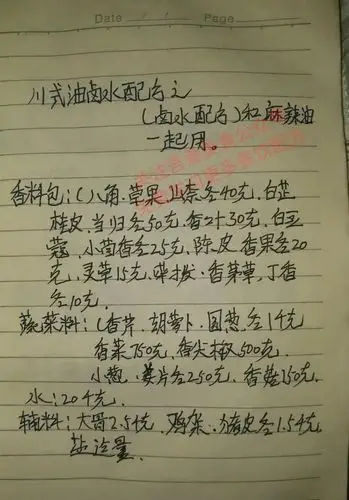 Date / / Page
川式油卤水配方之
(卤水配方)和麻辣油
一起用。
香料包:(八角.草果.山柰各40克.白芷
桂皮.当归各50克.香叶30克.白豆
蔻.小茴香各25克.陈皮.香果各20
克.灵草15克.荜拨.香茅草.丁香
各10克.
蔬菜料:(香芹.胡萝卜.圆葱.各1千克
香菜750克.香尖椒500克.
小葱.姜片各250克.香菇150克.
水:20千克.
辅料:大骨2.5千克.鸡架.猪皮各1.5千克.
盐适量.